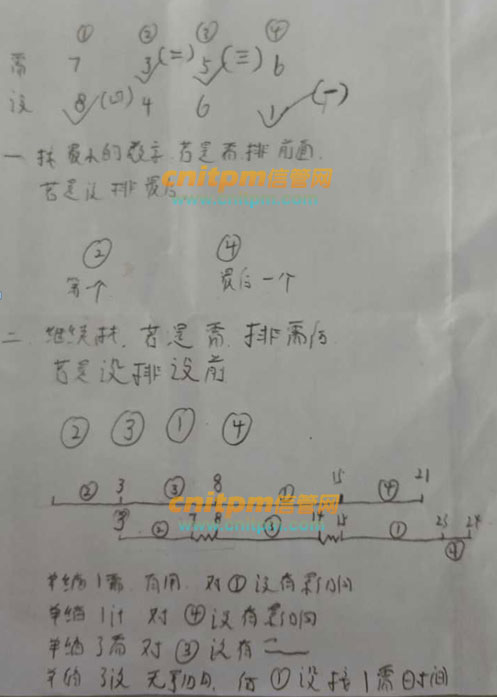 ① ② ③ ④
需 7 3 (二) 5 (三) 6
设 8 (四) 4 6 1 (一)
一 找最小的数字.若是需排前面.
若是设排最后
cnitpm信管网
www.cnitpm.com
② ④
第一个 最后一个
二. 继续找.若是需.排需后
若是设排设前
② ③ ① ④
② 3 ③ 8 ① 15 ④ 21
3 ② 7 8 ③ 14 15 ① 23 24
④
单缩1需.有用.对①设有影响
单缩1设 对④设有影响
单缩3需对③设有
单缩3设 无影响.何①设 1需 时间